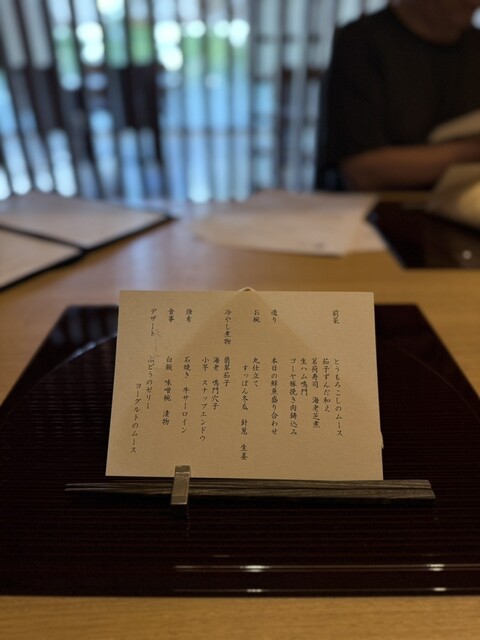 前菜
とうもろこしのムース
茄子ずんだ和え
茗荷寿司 海老芝煮
生ハム鳴門
ゴーヤ豚挽き肉鋳込み
造り
本日の鮮魚盛り合わせ
お椀
丸仕立て
すっぽん冬瓜 針葱 生姜
冷やし煮物
翡翠茄子
海老 鳴門穴子
小芋 スナップエンドウ
強肴
石焼き 牛サーロイン
食事
白飯 味噌椀 漬物
デザート
ぶどうのゼリー
ヨーグルトのムース